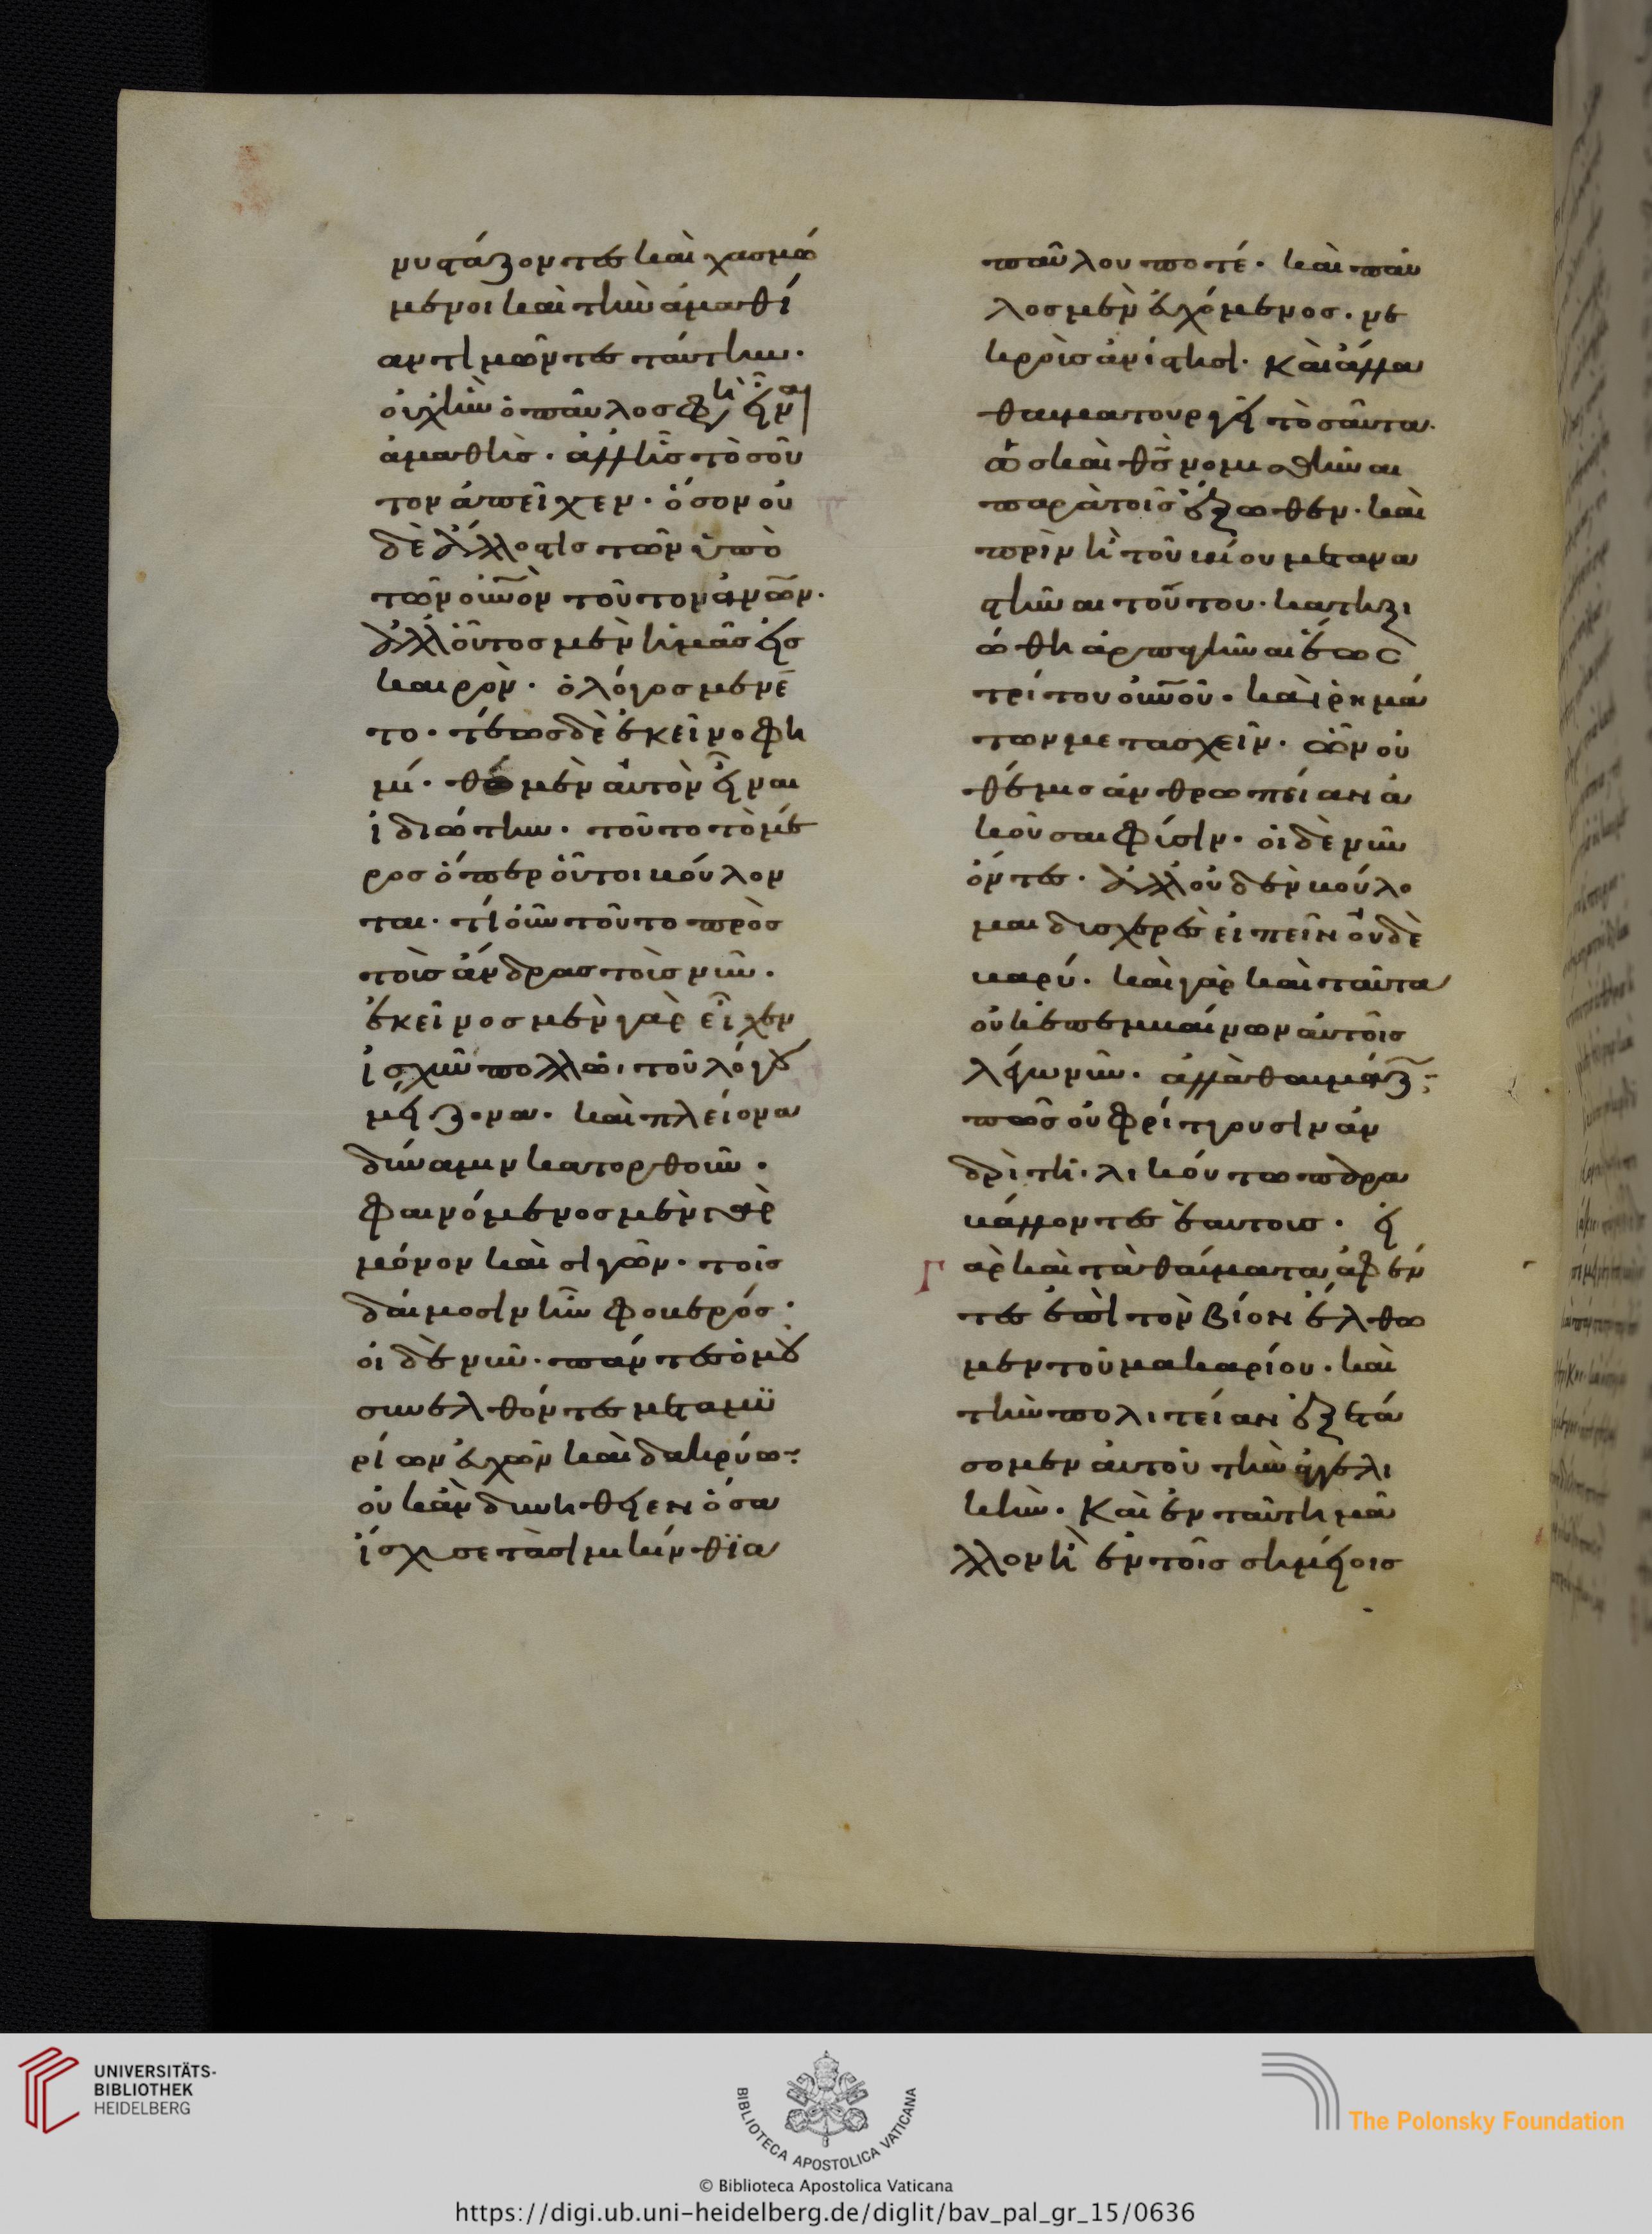 νυστάζοντες καὶ χασμώ
μενοι καὶ τὴν ἀμαθί
αν τιμῶντες ταύτην.
οὐχ ἣν ὁ παῦλος φη
ἀμαθὴς. ἀλλ ἧς τοσοῦ
τον ἀπεῖχεν. ὅσον οὐ
δὲ ἄλλος τις τῶν ὑπὸ
τῶν οὐνὸν τοῦτον ἀνῶν.
ἀλλ οὗτος μὲν ἡμᾶς εἰς
καιρὸν. ὁ λόγος μενέ
το. τέως δὲ ἐκεῖνο φη
μί. θῶ μὲν αὐτὸν εἶναι
ἰδιώτην. τοῦτο τὸ μέ
ρος ὅπερ οὗτοι βούλον
ται. τί οὖν τοῦτο πρὸς
τοὺς ἄνδρας τοὺς νῦν.
ἐκεῖνος μὲν γὰρ εἶχεν
ἰσχὺν πολλῶ. τοῦ λόγου
μείζονα. καὶ πλείονα
δύναμιν κατορθοῦν.
φαινόμενος μὲν γὰρ
μόνον καὶ σιγῶν. τοῖς
δαίμοσιν ἦν φοβερός.
οἱ δὲ νῦν. πάντες ὁμοῦ
συνελθόντες μετα μυ
ρίων εὐχῶν καὶ δακρύω.
οὐκ ἂν δυνηθεῖεν ὅσα
ἴσχυσε τὰ σιμικίνθια
παύλου ποτέ. καὶ παῦ
λος μὲν εὐχόμενος. νε
κροὺς ἀνίστησι. καὶ ἄλλα
θαυματουργεῖ τοσαῦτα.
ὡς καὶ θς νομισθῆναι
παρὰ τοῖς ἔξωθεν. καὶ
πρὶν ἢ τοῦ βίου μετανα
στῆναι τούτου. κατηξι
ώθη ἁρπαγῆναι ἕως
τρίτου οὐνοῦ. καὶ ρημά
των μετασχεῖν. ὧν οὐ
θέμις ἀνθρωπείαν ἀ
κοῦσαι φύσιν. οἱ δὲ νῦν
ὄντες. ἀλλ οὐδὲν βούλο
μαι δυσχερὲς εἰπεῖν οὐδὲ
βαρύ. καὶ γὰρ καὶ ταῦτα
οὐκ ἐπεμβαίνων αὐτοῖς
λέγω νῦν. ἀλλὰ θαυμάζ
πῶς οὐ φρίττουσιν ἀν
δρὶ τηλικούτω παρα
βάλλοντες ἑαυτους. εἰ
γὰρ καὶ τὰ θαύματα ἀφέν
τες ἐπὶ τὸν βίον ἔλθω
μεν τοῦ μακαρίου. καὶ
τὴν πολιτείαν ἐξετά
σομεν αὐτοῦ τὴν ἀγγελι
κὴν. καὶ ἐν ταύτη μᾶ
λλον ἢ ἐν τοῖς σημείοις
UNIVERSITÄTS-
BIBLIOTHEK
HEIDELBERG
BIBLIOTECA APOSTOLICA VATICANA
The Polonsky Foundation
© Biblioteca Apostolica Vaticana
https://digi.ub.uni-heidelberg.de/diglit/bav_pal_gr_15/0636